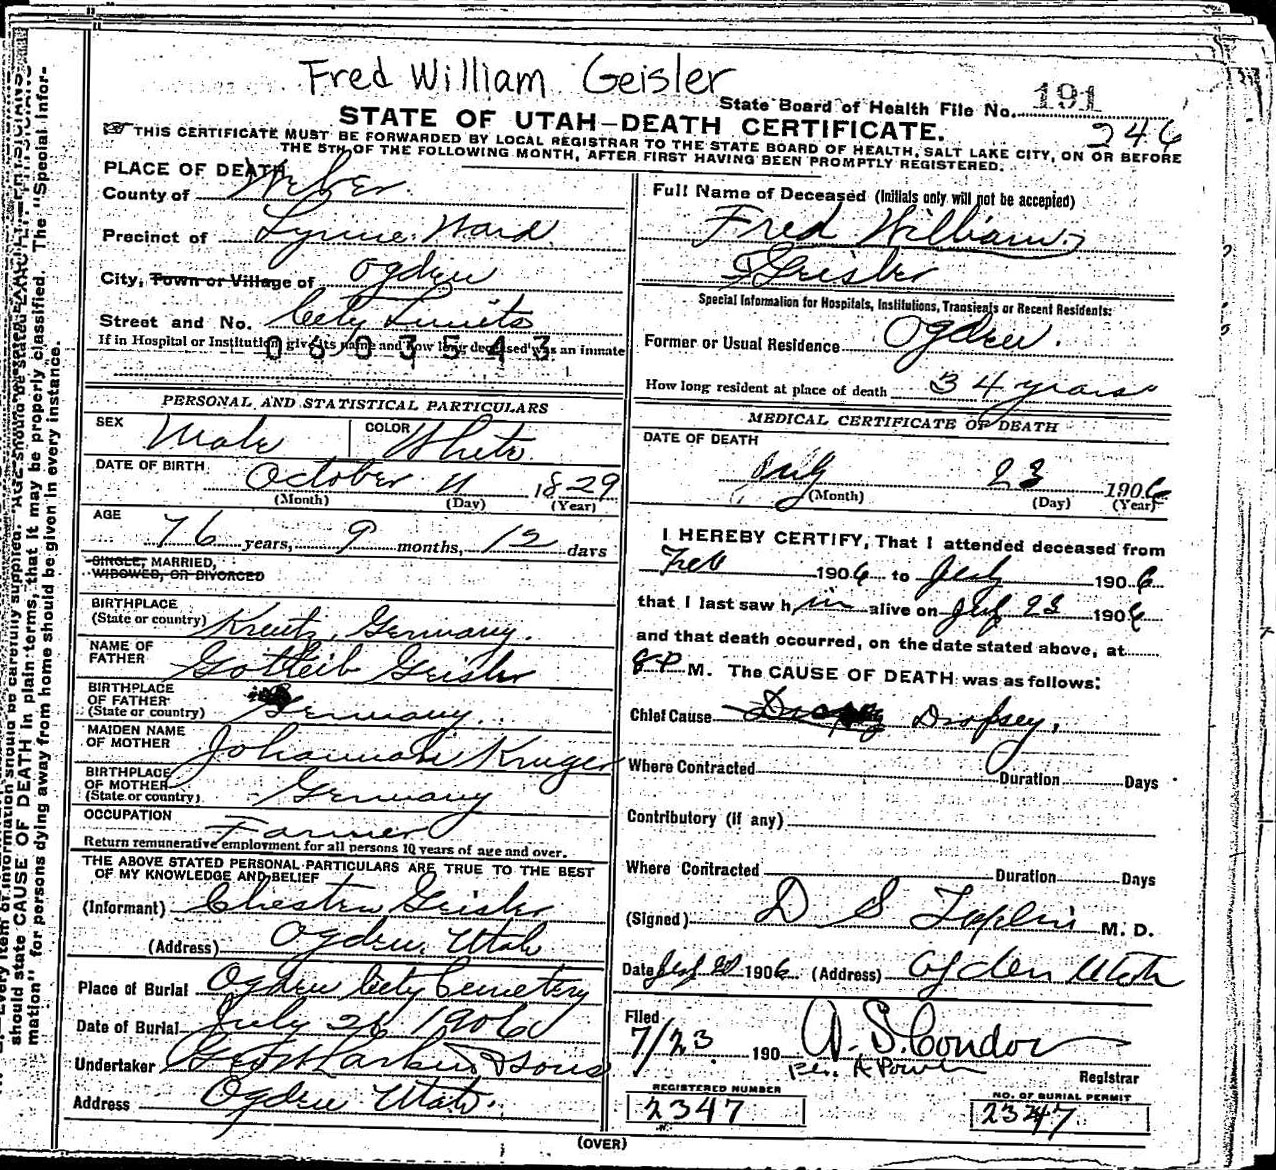 Fred William Geisler
State Board of Health File No. 191
246
STATE OF UTAH—DEATH CERTIFICATE.
☞ THIS CERTIFICATE MUST BE FORWARDED BY LOCAL REGISTRAR TO THE STATE BOARD OF HEALTH, SALT LAKE CITY, ON OR BEFORE
THE 5TH OF THE FOLLOWING MONTH, AFTER FIRST HAVING BEEN PROMPTLY REGISTERED.
PLACE OF DEATH
County of Weber
Precinct of Lynne Ward
City, Town or Village of Ogden
Street and No. City Limits
If in Hospital or Institution give its name and how long deceased was an inmate
0603543
PERSONAL AND STATISTICAL PARTICULARS
SEX Male COLOR White
DATE OF BIRTH October 11 1829
(Month) (Day) (Year)
AGE 76 years, 9 months, 12 days
SINGLE, MARRIED,
WIDOWED, OR DIVORCED
BIRTHPLACE
(State or country) Kreutz, Germany.
NAME OF
FATHER Gotleib Geisler
BIRTHPLACE
OF FATHER
(State or country) Germany.
MAIDEN NAME
OF MOTHER Kruger
BIRTHPLACE
OF MOTHER
(State or country) Germany
OCCUPATION Farmer
Return remunerative employment for all persons 10 years of age and over.
THE ABOVE STATED PERSONAL PARTICULARS ARE TRUE TO THE BEST
OF MY KNOWLEDGE AND BELIEF
(Informant) Chester Geisler
(Address) Ogden, Utah
Place of Burial Ogden City Cemetery
Date of Burial July 26 1906
Undertaker Geo W Larkin & Sons
Address Ogden Utah.
Full Name of Deceased (Initials only will not be accepted)
Fred William
Geisler
Special Information for Hospitals, Institutions, Transients or Recent Residents:
Former or Usual Residence Ogden.
How long resident at place of death 34 years
MEDICAL CERTIFICATE OF DEATH
DATE OF DEATH
July 23 1906
(Month) (Day) (Year)
I HEREBY CERTIFY, That I attended deceased from
Feb 1906 to July 1906
that I last saw him alive on July 23 1906
and that death occurred, on the date stated above, at
8 P M. The CAUSE OF DEATH was as follows:
Chief Cause Dropsey,
Where Contracted Duration Days
Contributory (if any)
Where Contracted Duration Days
(Signed) D S Taplin M. D.
Date July 1906 (Address) Ogden Utah
Filed
7/23 190 A. S. Condon
Per. A Power
Registrar
REGISTERED NUMBER
2347
NO. OF BURIAL PERMIT
2347
(OVER)
should state CAUSE OF DEATH in plain terms, that it may be properly classified. The "Special Infor-
mation" for persons dying away from home should be given in every instance.